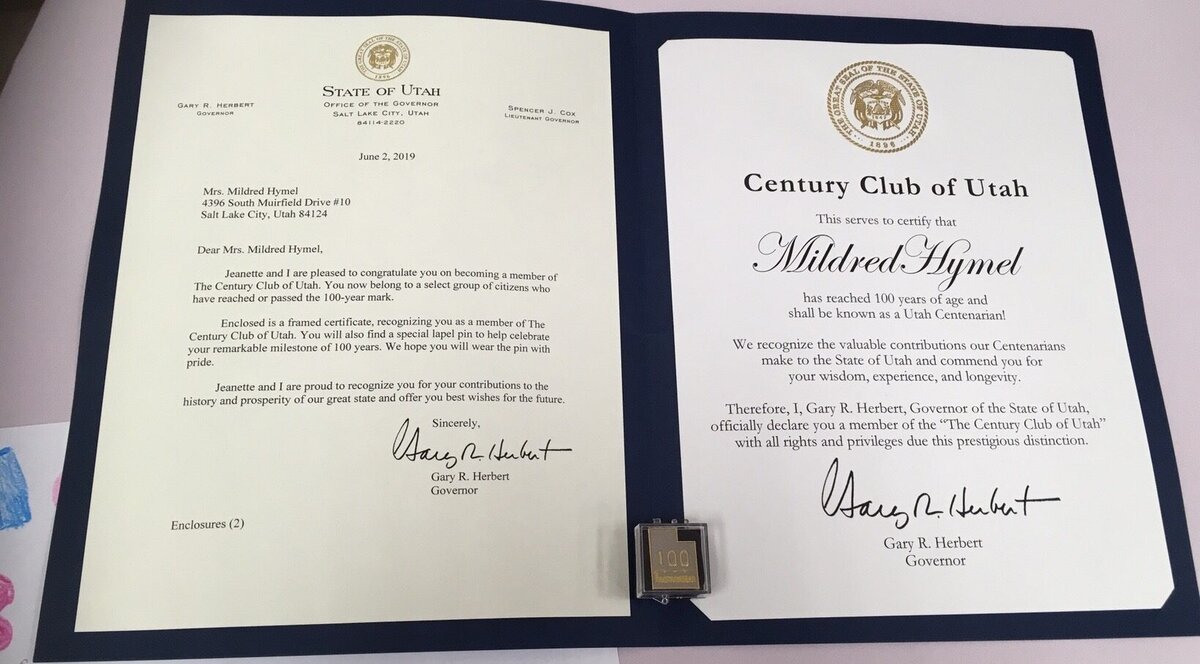 THE GREAT SEAL OF THE STATE OF UTAH
1896
STATE OF UTAH
OFFICE OF THE GOVERNOR
SALT LAKE CITY, UTAH
84114-2220
GARY R. HERBERT
GOVERNOR
SPENCER J. COX
LIEUTENANT GOVERNOR
June 2, 2019
Mrs. Mildred Hymel
4396 South Muirfield Drive #10
Salt Lake City, Utah 84124
Dear Mrs. Mildred Hymel,
Jeanette and I are pleased to congratulate you on becoming a member of
The Century Club of Utah. You now belong to a select group of citizens who
have reached or passed the 100-year mark.
Enclosed is a framed certificate, recognizing you as a member of The
Century Club of Utah. You will also find a special lapel pin to help celebrate
your remarkable milestone of 100 years. We hope you will wear the pin with
pride.
Jeanette and I are proud to recognize you for your contributions to the
history and prosperity of our great state and offer you best wishes for the future.
Sincerely,
Gary R. Herbert
Gary R. Herbert
Governor
Enclosures (2)
THE GREAT SEAL OF THE STATE OF UTAH
1896
Century Club of Utah
This serves to certify that
Mildred Hymel
has reached 100 years of age and
shall be known as a Utah Centenarian!
We recognize the valuable contributions our Centenarians
make to the State of Utah and commend you for
your wisdom, experience, and longevity.
Therefore, I, Gary R. Herbert, Governor of the State of Utah,
officially declare you a member of the “The Century Club of Utah”
with all rights and privileges due this prestigious distinction.
Gary R. Herbert
Gary R. Herbert
Governor
100